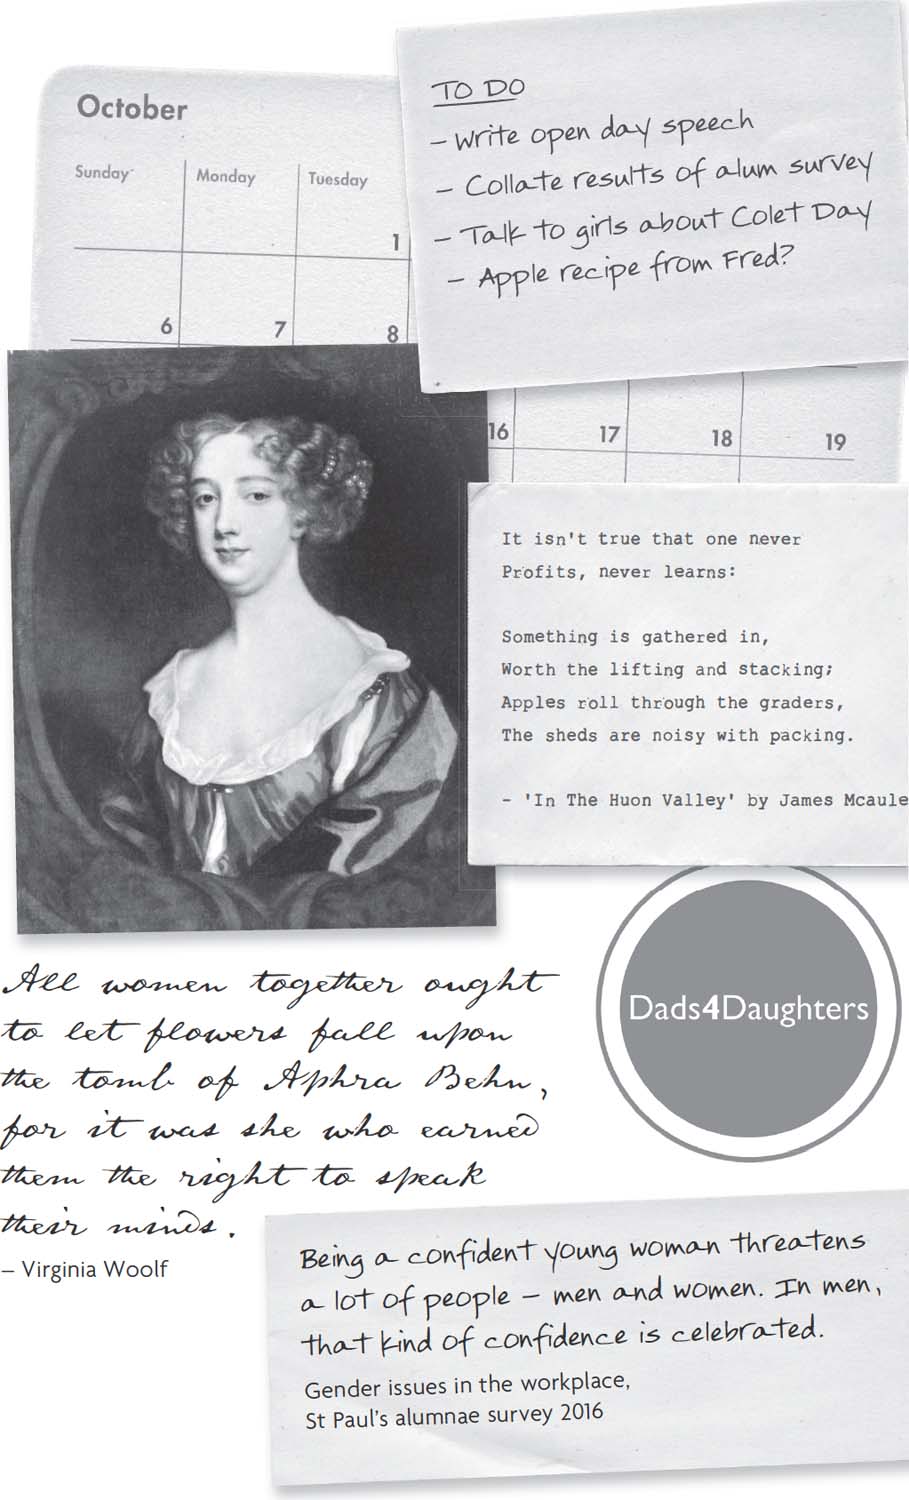 October
Sunday Monday Tuesday
1
6 7 8
16 17 18 19
TO DO
– Write open day speech
– Collate results of alum survey
– Talk to girls about Colet Day
– Apple recipe from Fred?
It isn't true that one never
Profits, never learns:
Something is gathered in,
Worth the lifting and stacking;
Apples roll through the graders,
The sheds are noisy with packing.
- 'In The Huon Valley' by James Mcaule
Dads4Daughters
All women together ought
to let flowers fall upon
the tomb of Aphra Behn,
for it was she who earned
them the right to speak
their minds.
– Virginia Woolf
Being a confident young woman threatens
a lot of people – men and women. In men,
that kind of confidence is celebrated.
Gender issues in the workplace,
St Paul's alumnae survey 2016